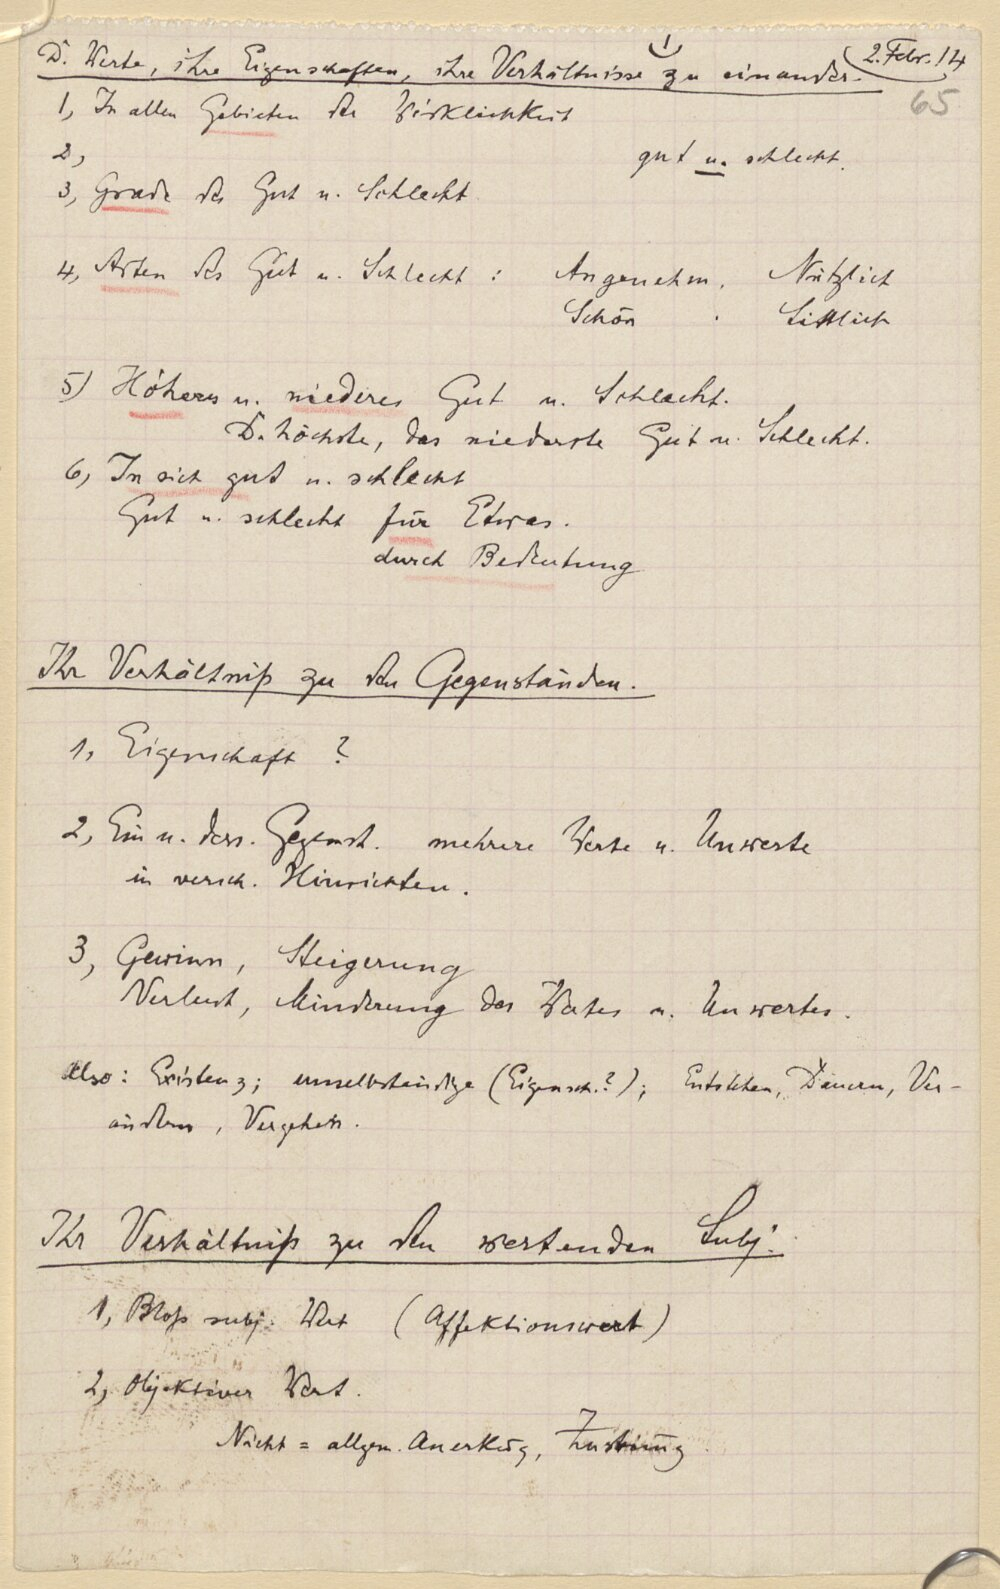 1
2. Febr. 14
D. Werte, ihre Eigenschaften, ihre Verhältnisse zu einander.
65
1, In allen Gebieten der Wirklichkeit
2, gut u. schlecht.
3, Grade des Gut u. Schlecht
4, Arten des Gut u. Schlecht : Angenehm, Nützlich
Schön . Sittlich
5) Höheres u. niederes Gut u. Schlecht.
D. höchste, das niederste Gut u. Schlecht.
6, In sich gut u. schlecht
Gut u. schlecht für Etwas.
durch Bedeutung
Ihr Verhältniß zu den Gegenständen.
1, Eigenschaft ?
2, Ein u. ders. Gegenst. mehrere Werte u. Unwerte
in versch. Hinsichten.
3, Gewinn, Steigerung
Verlust, Minderung des Wertes u. Unwertes.
Also: Existenz; unselbständige (Eigensch.?); Entstehen, Dauern, Ver-
ändern, Vergehen.
Ihr Verhältniß zu den wertenden Subj.
1, Bloß subj. Wert (Affektionswert)
2, Objektiver Wert.
Nicht = allgem. Anerkg,